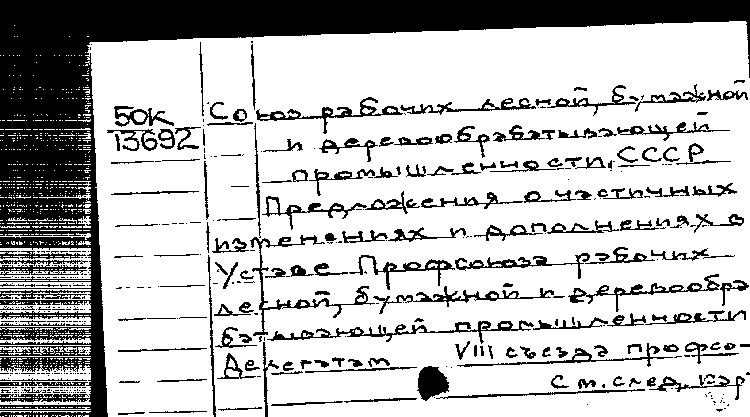 50К Союз рабочих лесной, бумажной
13692 и деревообрабатывающей
промышленности, СССР
Предложения о частичных
изменениях и дополнениях в
Уставе Профсоюза рабочих
лесной, бумажной и деревообра
батывающей промышленности
Делегатам VIII съезда профсо-
См. след. кар